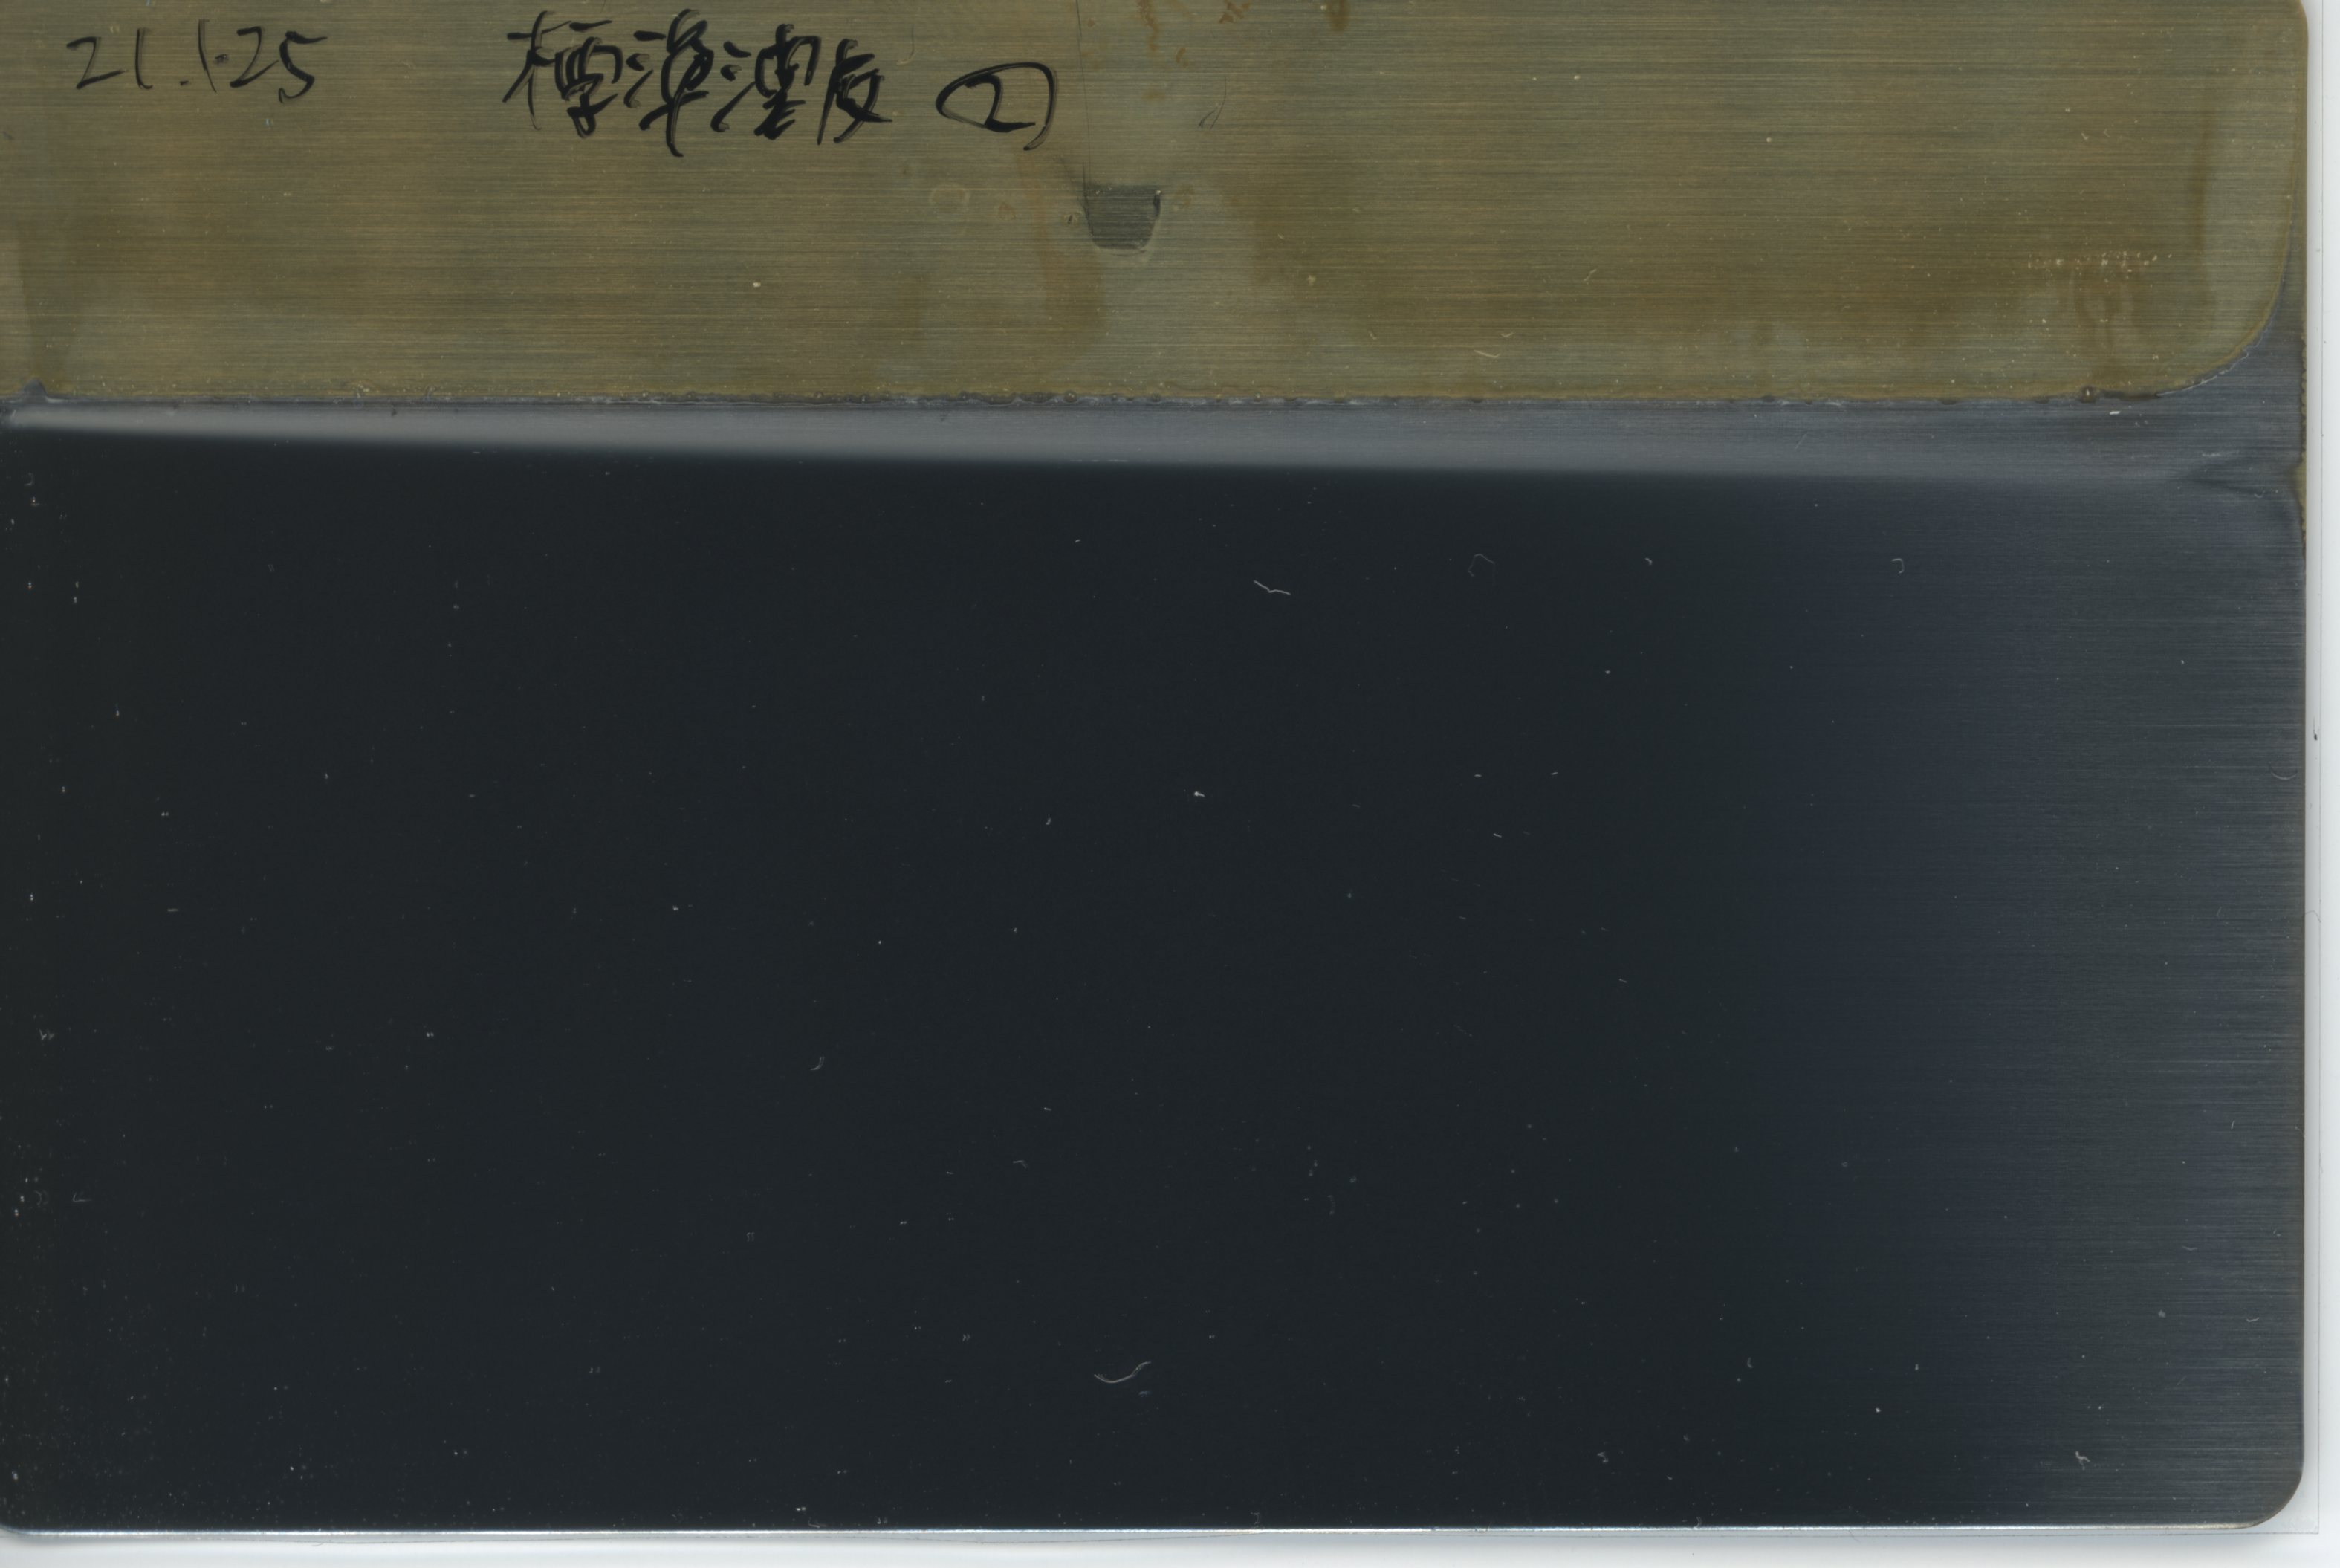 21.1.25 標準濃度 ②